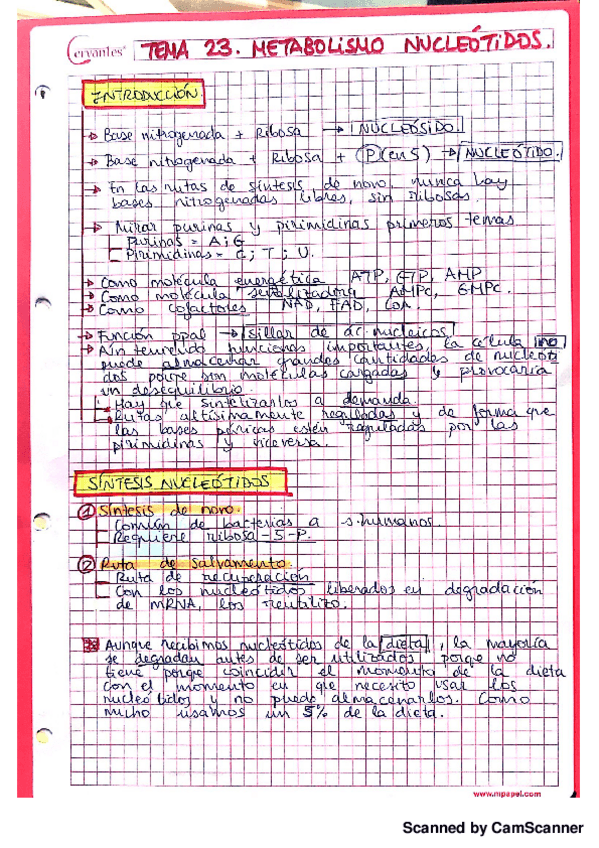 Cervantes
TEMA 23. METABOLISMO NUCLEÓTIDOS.
INTRODUCCIÓN.
→ Base nitrogenada + Ribosa → NUCLEÓSIDO.
→ Base nitrogenada + Ribosa + P (en 5) → NUCLEÓTIDO.
→ En las rutas de síntesis de novo, nunca hay
bases nitrogenadas libres, sin ribosas.
→ Mirar purinas y pirimidinas primeros temas
Purinas = A; G
Pirimidinas = C; T; U.
→ Como molécula energética ATP, GTP, AMP
→ Como molécula señalizadora AMPc, GMPc.
→ Como cofactores NAD, FAD, CoA.
→ Función ppal → sillar de ác. nucleicos
→ Aún teniendo funciones importantes, la célula no
puede almacenar grandes cantidades de nucleóti
dos porqe son moléculas cargadas y provocaría
un desequilibrio.
Hay que sintetizarlos a demanda.
Rutas altísimamente reguladas y de forma que
las bases púricas estén reguladas por las
pirimidinas y viceversa.
SÍNTESIS NUCLEÓTIDOS
① Síntesis de novo.
Común de bacterias a s. humanos.
Requiere ribosa-5-P.
② Ruta de salvamento.
Ruta de recuperación
Con los nucleótidos liberados en degradación
de mRNA, los reutilizo.
Aunque recibimos nucleótidos de la dieta, la mayoría
se degradan antes de ser utilizados porque no
tiene porque coincidir el momento de la dieta
con el momento en que necesito usar los
nucleótidos y no puedo almacenarlos. Como
mucho usamos un 5% de la dieta.
www.mpapel.com
Scanned by CamScanner